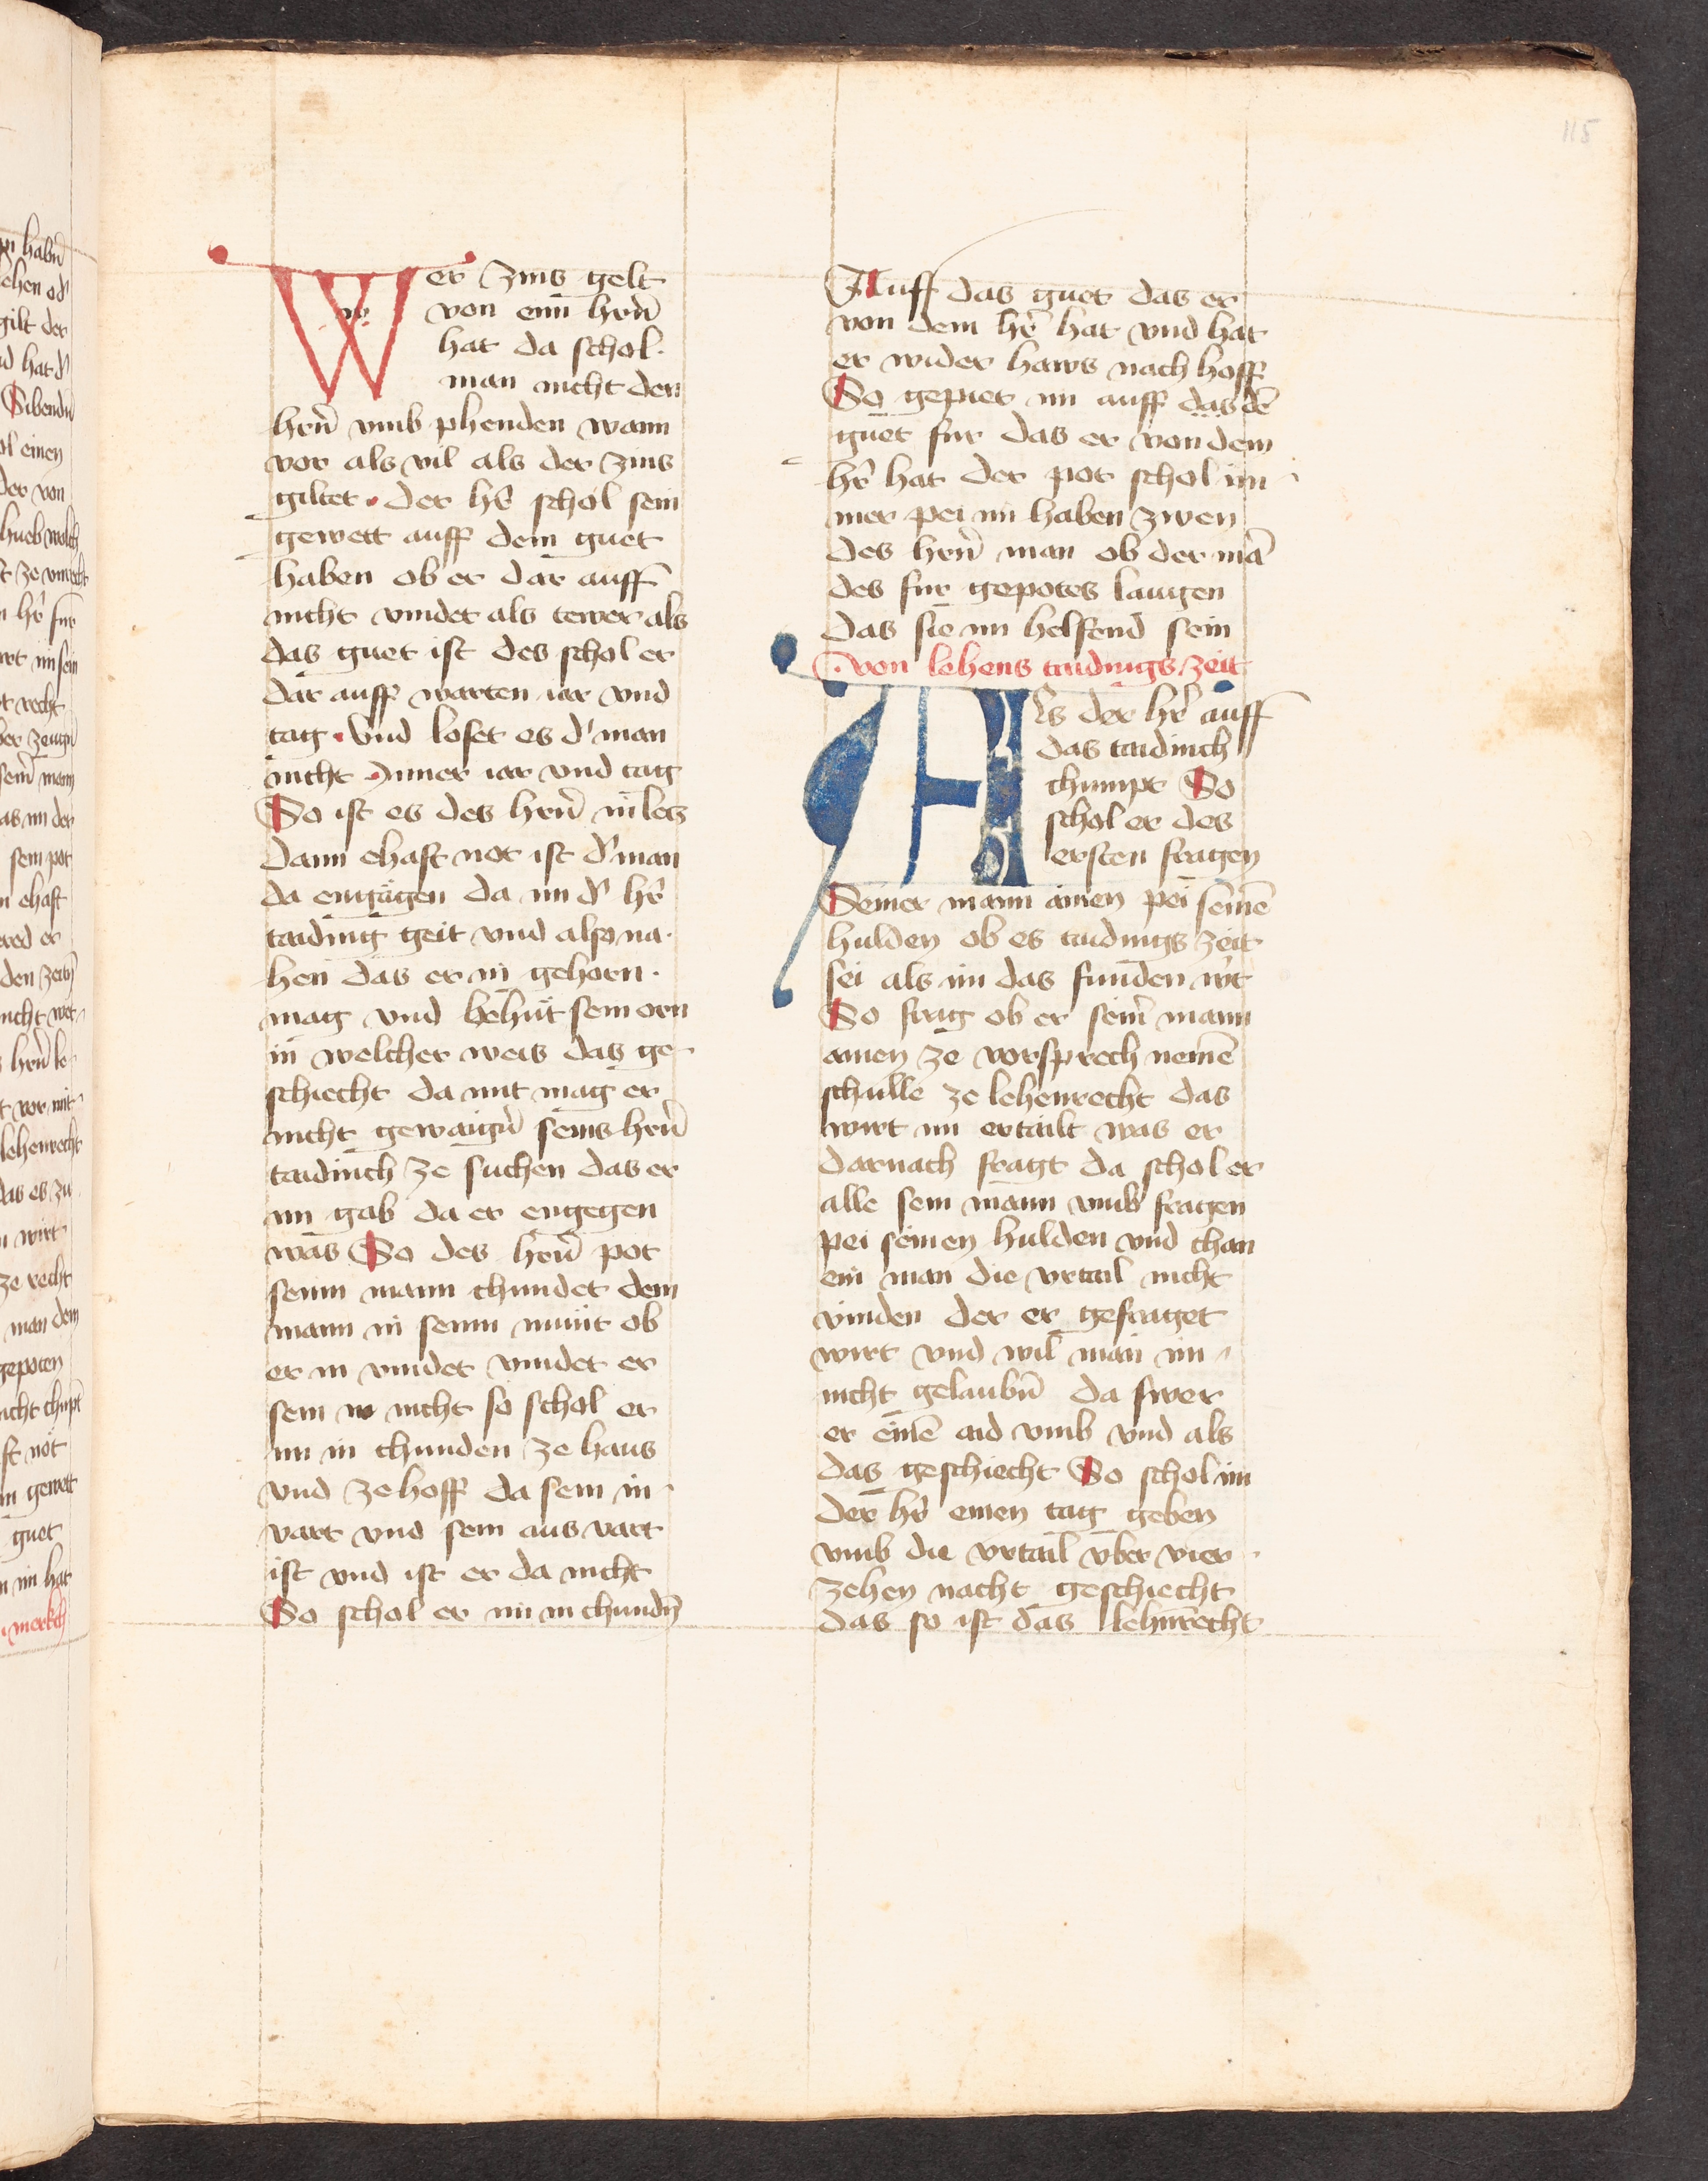 115
Wer zins gelt
von eim̄ hrn̄
hat da schol·
man nicht den
hrn̄ vmb phenden wann
vor als vil als der zins
giltet · der hr̄ schol sein
gewett auff dem guet
haben ob er dar auff
nicht vindet als tewer als
das guet ist des schol er
dar auff warten iar vnd
tag · vnd loset es d' man
nicht Inner iar vnd tag
So ist es des hrn̄
Dann ehaft not ist d' man
da engagen da im d' hr̄
taiding geit vnd also na·
hen das er in gehorn·
mag vnd behut sein orn
in welcher weis das ge-
schiecht da mit mag er
nicht gewaign̄ seins hrn̄
taidinch ze suchen das er
im gab da er engegen
was So des hrn̄ pot
seim mann chundet dem
mann in seim munt ob
er in vindet vindet er
sein nicht so schol er
im in chunden ze haus
vnd ze hoff da sein in-
vart vnd sein aus vart
ist vnd ist er da nicht
So schol er im in chundn̄
Auff das guet das er
von dem hr̄ hat vnd hat
er wider haws nach hoff
So gepiet im auff das dē
guet fur das er von dem
hr̄ hat der pot schol im-
mer pei im haben zwen
des hrn̄ man ob der mā
des fur gepotes laugen
das sie im helfend sein
von lehens taidings zeit
Als der hr̄ auff
das taidinch
chumpt So
schol er des
ersten fragen
Seiner mann ainen pei seinē
hulden ob es taidings zeit
sei als im das funden wirt
So frag ob er sein̄ mann
ainen ze vorsprech nemē
schulle ze lehenrecht das
wirt im ertailt was er
darnach fragt da schol er
alle sein mann vmb fragen
pei seinen hulden vnd chan
ein man die vrtail nicht
vinden der er gefraget
wirt vnd wil man im
nicht gelaubn̄ da swer
er einē aid vmb vnd als
das geschiecht So schol im
der hr̄ einen tag geben
vmb die vrtail vber vier-
zehen nacht geschiecht
das so ist das lehnrecht